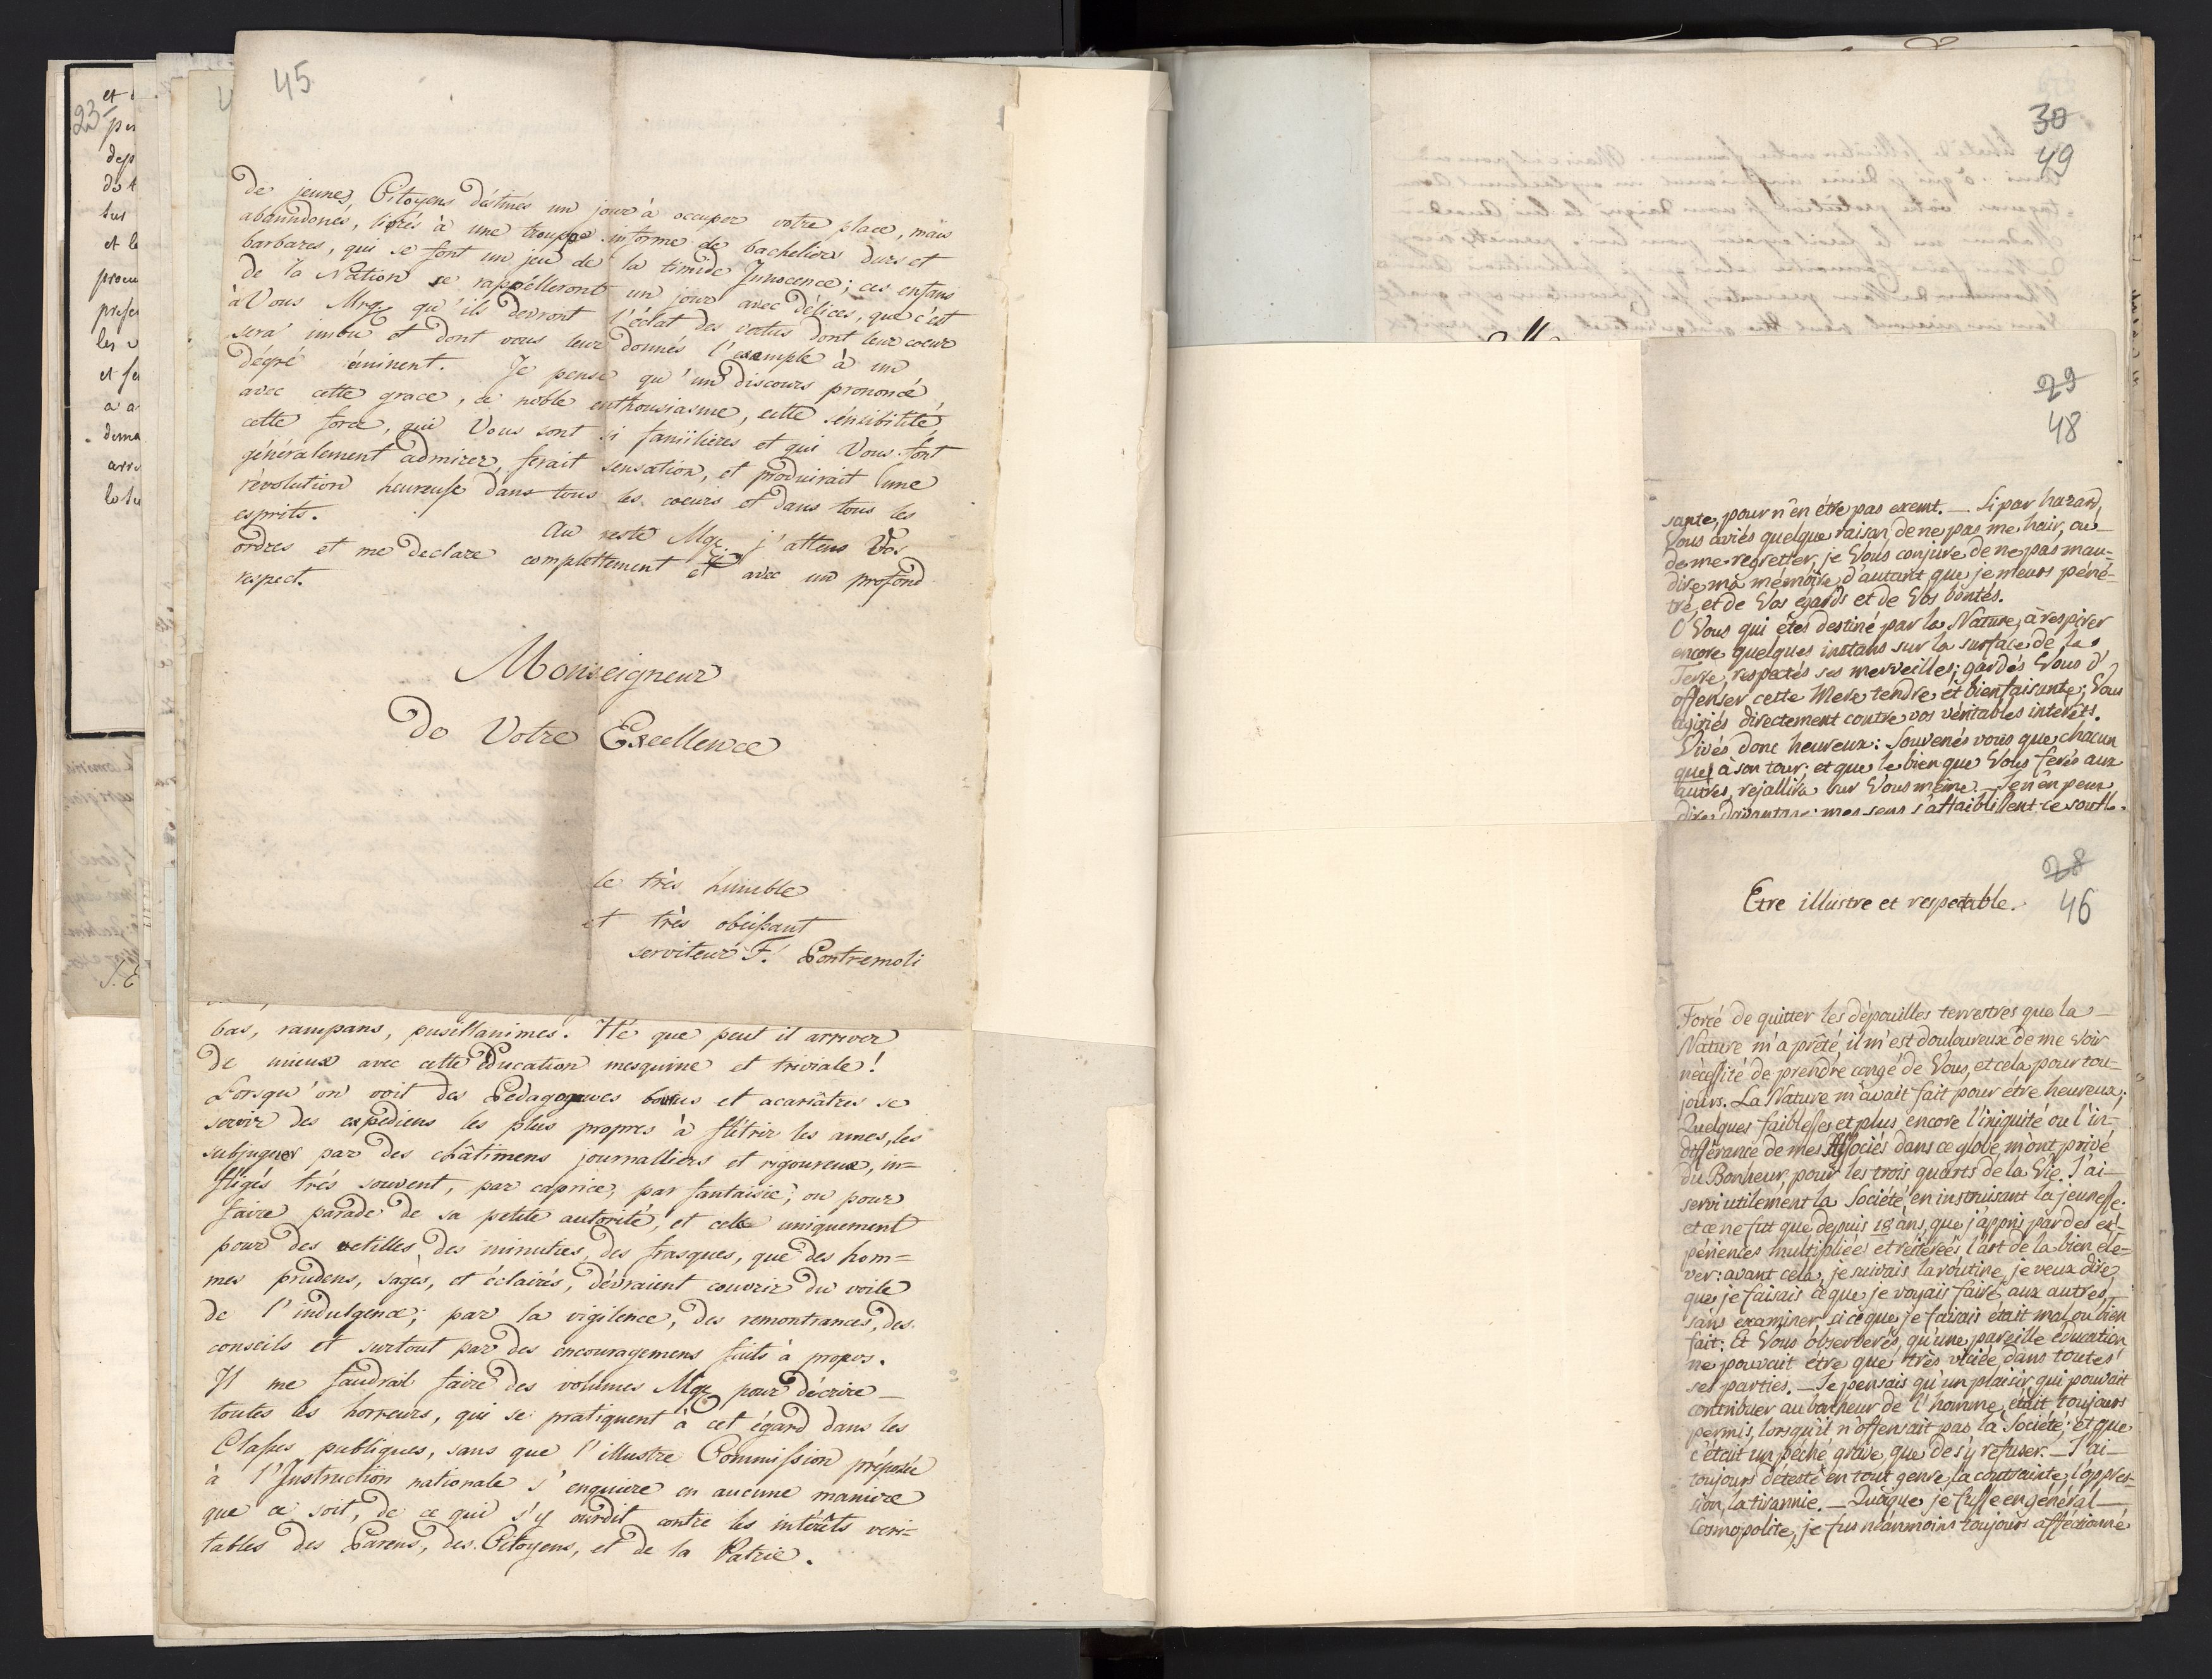 45
de jeunes Citoyens destinés un jour à occuper votre place, mais
abandonés, livrés à une troupe informe de bacheliers durs et
barbares, qui se font un jeu de la timide Innocence; ces enfans
de la Nation se rappélleront un jour avec délices, que c'est
à Vous Mrgr qu'ils devront l'éclat des vertus dont leur coeur
sera imbu et dont vous leur donnés l'example à un
dégré éminent. Je pense qu'un discours prononcé,
avec cette grace, ce noble enthousiasme, cette sénsibilité,
cette force, qui Vous sont si familières et qui Vous font
généralement admirer, ferait sensation, et produirait une
révolution heureuse dans tous les coeurs et dans tous les
esprits.
Au reste Mgr j'attens Vos
ordres et me declare complettement et avec un profond
respect.
Monseigneur
De Votre Excellence
le très humble
et très obéissant
serviteur F. Pontremoli
bas, rampans, pusillanimes. Hé que peut il arriver
de mieux avec cette Education mesquine et triviale!
Lorsqu'on voit des Pédagogues bourus et acariâtres se
servir des expédiens les plus propres à flétrir les ames, les
subjuguer par des châtimens journalliers et rigoureux, in=
fligés très souvent, par caprice, par fantaisie, ou pour
faire parade de sa petite autorité, et cela uniquement
pour des vetilles, des minuties, des frasques, que des hom=
mes prudens, sages, et éclairés, dévraient couvrir du voile
de l'indulgence; par la vigilence, des remontrances, des
conseils et surtout par des encouragemens faits à propos.
Il me faudrait faire des volumes Mgr pour décrire
toutes les horreurs, qui se pratiquent à cet égard dans les
Classes publiques, sans que l'illustre Commission préposée
à l'Instruction nationale s'enquiere en aucune maniere
que ce soit, de ce qui s'y ourdit contre les intérêts veri=
tables des Parens, des Citoyens, et de la Patrie.
23
et
per
dep
des
et le
procu
presen
les
et se
a a
dema
arre
30
49
29
48
sante, pour n'en être pas exemt. — Si par hazard,
Vous aviés quelque raison de ne pas me hair, ou
de me regretter, je Vous conjure de ne pas mau-
dire ma mémoire, d'autant que je meurs péné-
tré, et de Vos égards et de Vos bontés.
O Vous qui êtes destiné par la Nature, à respirer
encore quelques instans sur la surface de la
Terre, respectés ses merveilles; gardés Vous d'
offenser cette Mere tendre et bienfaisante; Vous
agiriés directement contre vos véritables interêts.
Vivés donc heureux: Souvenés vous que chacun
que à son tour; et que le bien que Vous ferés aux
autres, rejallira sur Vous même. — Je n'en peux
dire davantage: mes sens s'affaiblissent. ce souffle
28
46
Etre illustre et respectable.
Forcé de quitter les dépouilles terrestres que la
Nature m'a prêté, il m'est douloureux de me voir
nécessité de prendre congé de Vous, et cela pour tou-
jours. La Nature m'avait fait pour être heureux;
Quelques faiblesses et plus encore l'iniquité ou l'in-
différance de mes Associés dans ce globe, m'ont privé
du Bonheur, pour les trois quarts de la Vie. J'ai
servi utilement la Société, en instruisant la jeunesse
et ce ne fut que depuis 18 ans, que j'appris par des ex-
périences multipliées et reiterées, l'art de la bien éle-
ver: avant cela, je suivais la routine, je veux dire,
que je faisais ce que je voyais faire aux autres,
sans examiner, si ce que je faisais était mal ou bien
fait: Et Vous observerés, qu'une pareille éducation
ne pouvait être que très viciée, dans toutes
ses parties. — Je pensais qu'un plaisir, qui pouvait
contribuer au bonheur de l'homme, était toujours
permis, lorsqu'il n'offensait pas la Société; et que
c'était un péché grave, que de s'y refuser. — J'ai
toujours détesté en tout genre, la contrainte, l'oppres-
sion, la tirannie. — Quoique je fusse en général
Cosmopolite, je fus néanmoins toujours affectionné